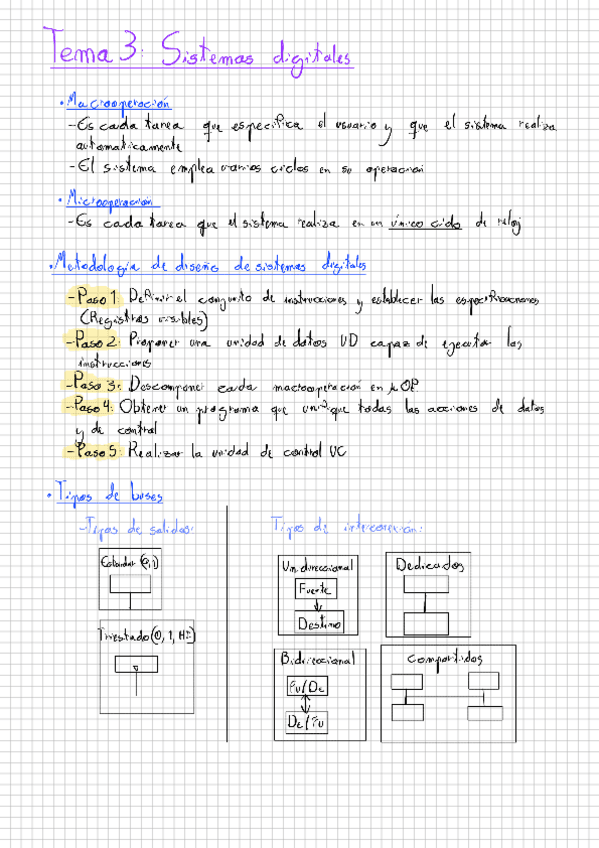 Tema 3: Sistemas digitales
• Macrooperación
- Es cada tarea que especifica el usuario y que el sistema realiza
automaticamente
- El sistema emplea varios ciclos en su operacion
• Microoperacion
- Es cada tarea que el sistema realiza en un único ciclo de reloj
• Metodología de diseño de sistemas digitales
- Paso 1: Definir el conjunto de instrucciones y establecer las especificaciones
(Registros visibles)
- Paso 2: Proponer una unidad de datos UD capaz de ejecutar las
instrucciones
- Paso 3: Descomponer cada macrooperación en μOP
- Paso 4: Obtener un programa que unifique todas las acciones de datos
y de control
- Paso 5: Realizar la unidad de control UC
• Tipos de buses
- Tipos de salidas:
Estandar (0,1)
Triestado (0, 1, HI)
Tipos de interconexión:
Unidireccional
Fuente
Destino
Dedicados
Bidireccional
Fu/De
De/Fu
Compartidos